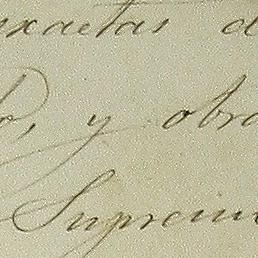 exactas d
o, y obra
Suprem